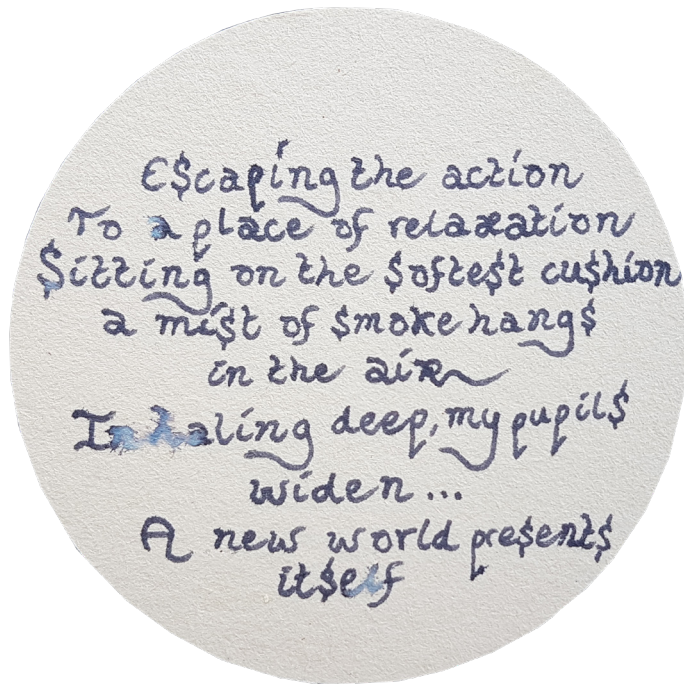 E$caping the action
To a place of relaxation
$itting on the $ofte$t cu$hion
a mi$t of $moke hang$
in the air
Inhaling deep, my pupil$
widen...
A new world pre$ent$
it$elf